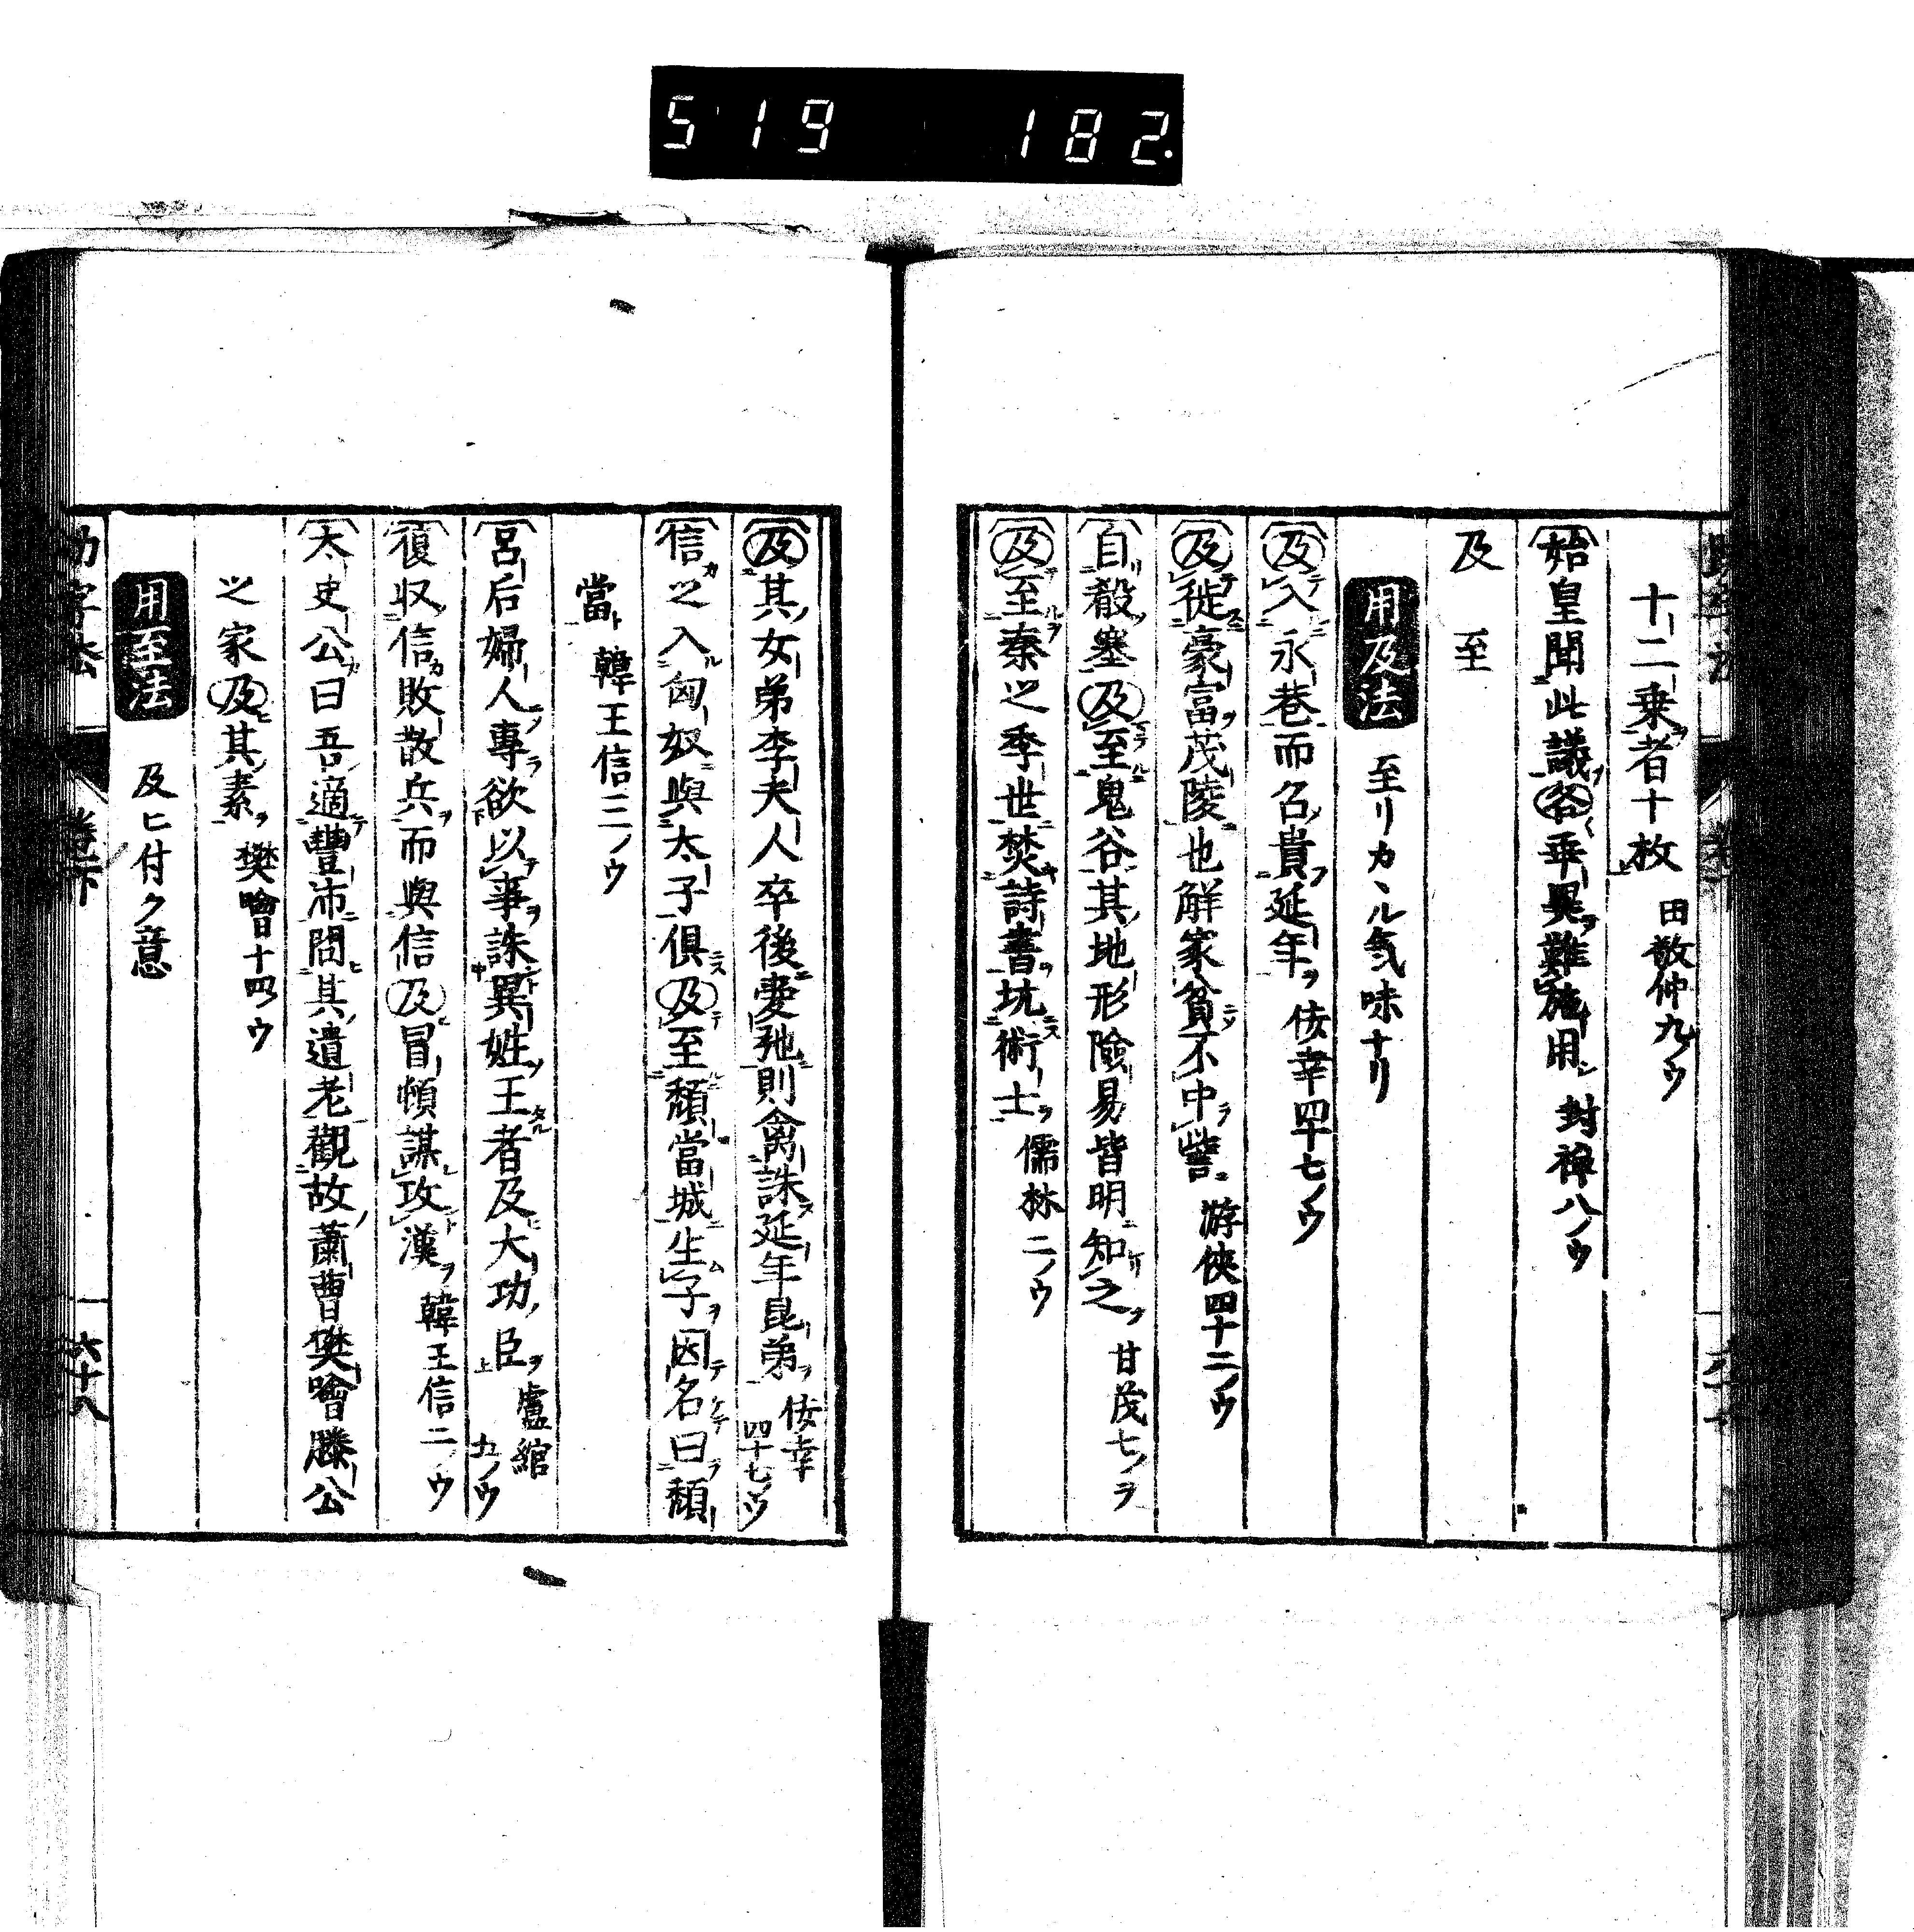 519 182.
十二乗者十枚 田敬仲九ノウ
始皇聞此議各乖異難施用 封禅八ノウ
及 至
用及法 至リカヽル気味ナリ
及入永巷而召貴延年 佞幸四十七ノウ
及徙豪富茂陵也解家貧不中訾 游侠四十二ノウ
自殽塞及至鬼谷其地形険易皆明知之 甘茂七ノラ
及至秦之季世焚詩書坑術士 儒林二ノウ
及其女弟李夫人卒後愛弛則禽誅延年昆弟 佞幸四十七ノウ
信之入匈奴與太子倶及至頽當城生子因名曰頽
當 韓王信三ノウ
呂后婦人專欲以事誅異姓王者及大功臣 盧綰九ノウ
復収信敗散兵而與信及冒頓謀攻漢 韓王信二ノウ
太史公曰吾適豐沛問其遺老觀故蕭曹樊噲滕公
之家及其素 樊噲十四ノウ
用至法 及ヒ付ク意
巻下
六十八